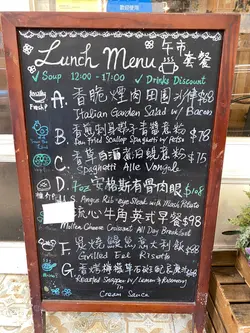 Lunch Menu 午市套餐
✓ Soup 12:00 - 17:00 ✓ Drinks Discount
A. 香脆煙肉田園沙律 $68
Italian Garden Salad w/ Bacon
B. 香煎刺身帶子青醬意粉 $78
Pan Fried Scallop Spaghetti w/ Pesto
C. 香草白酒意粉 $75
Spaghetti Alle Vongole
D. 7oz 安格斯有骨肉眼 $108
U.S. Angus Rib-eye Steak with Mash Potato
流心牛角英式早餐 $98
Molten Cheese Croissant All Day Breakfast
F. 鰻魚意大利飯 $88
Grilled Eel Risotto
G. 香烤檸檬草石班配忌廉汁
Roasted Snapper w/ Lemon & Rosemary
in
Cream Sauce